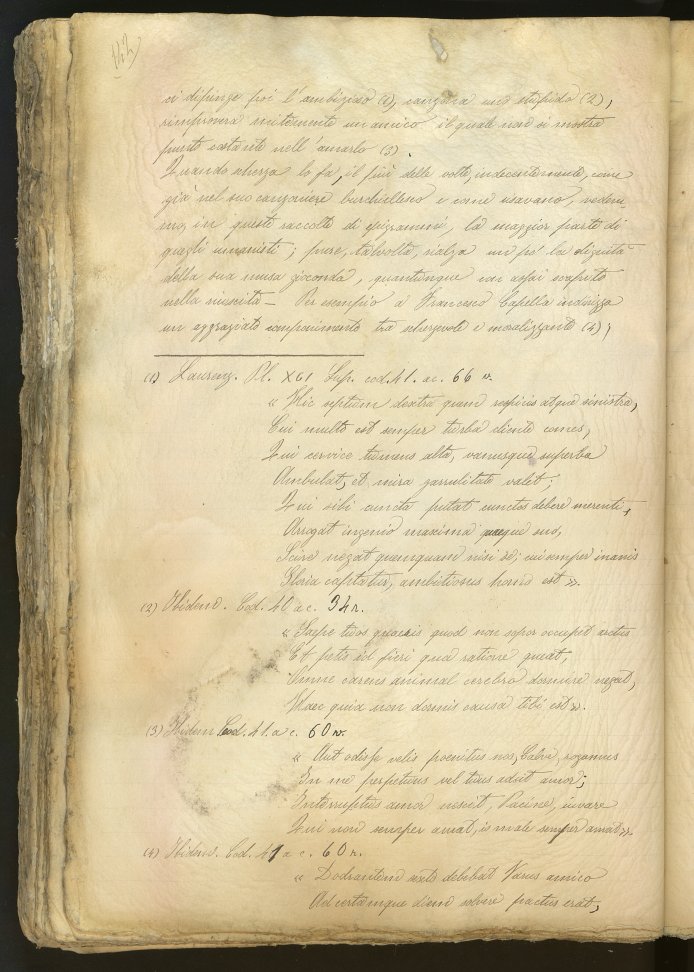 142
ci dipinge poi l'ambizioso (1), canzona uno stupido (2),
rimprovera mitemente un amico il quale non si mostra
punto costante nell'amarlo (3).
Quando scherza lo fa, il più delle volte, indecentemente, come
già nel suo canzoniere burchiellesco e come usavano, vedem-
mo, in queste raccolte di epigrammi, la maggior parte di
quegli umanisti; pure, talvolta, rialza un po' la dignità
della sua musa gioconda, quantunque con assai scapito
nella nuscita - Per esempio a Francesco Capella indirizza
un aggraziato componimento tra scherzevole e moralizzante (4);
(1) Laurenz. Pl. XCI Sup. cod. 41. ac. 66 v.
« Hic septum dextra quem respicis atque sinistra,
Cui multo est semper turba cliente comes,
Qui cervice tumens alta, vanusque superba
Ambulat, et mira garrulitate valet;
Qui sibi cuncta putat cunctos debere merenti,
Arrogat ingenio maxima quaeque suo,
Scire negat quemquam nisi se; cui semper inanis
Gloria captatur, ambitiosus homo est ».
(2) Ibidem. Cod. 40 a c. 34 r.
« Saepe tuos quaeris quod non sopor occupet artus
Et petis id fieri qua ratione queat,
Omne carens animal cerebro dormire negat,
Haec quia non dormis causa tibi est ».
(3) Ibidem Cod. 41. a c. 60 v.
« Aut odisse velis poenitus nos, Calve, rogamus
In me perpetuus vel tuus adsit amor;
Interruptus amor nescit, Pacine, iuvare
Qui non semper amat, is male semper amat »
(4) Ibidem. Cod. 41 a c. 60 r.
« Dodrantem debebat Varus amico
Ad certamque diem solvere pactus erat,